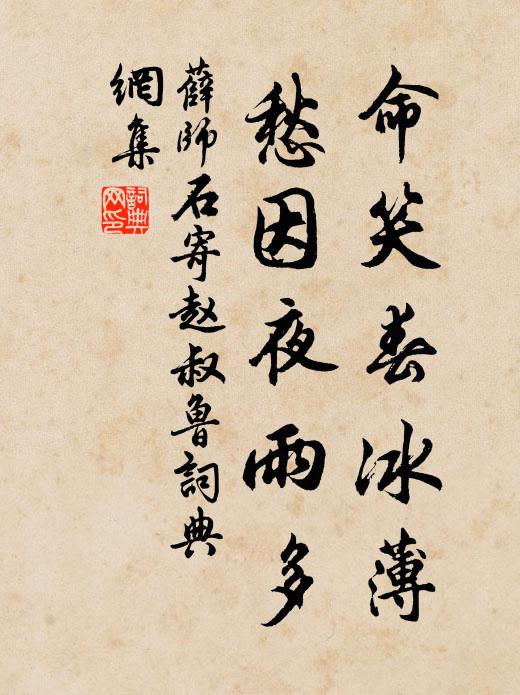 命笑春冰薄
愁因夜雨多
薛師石寄赵叔魯詞典
網集
詞典
网印